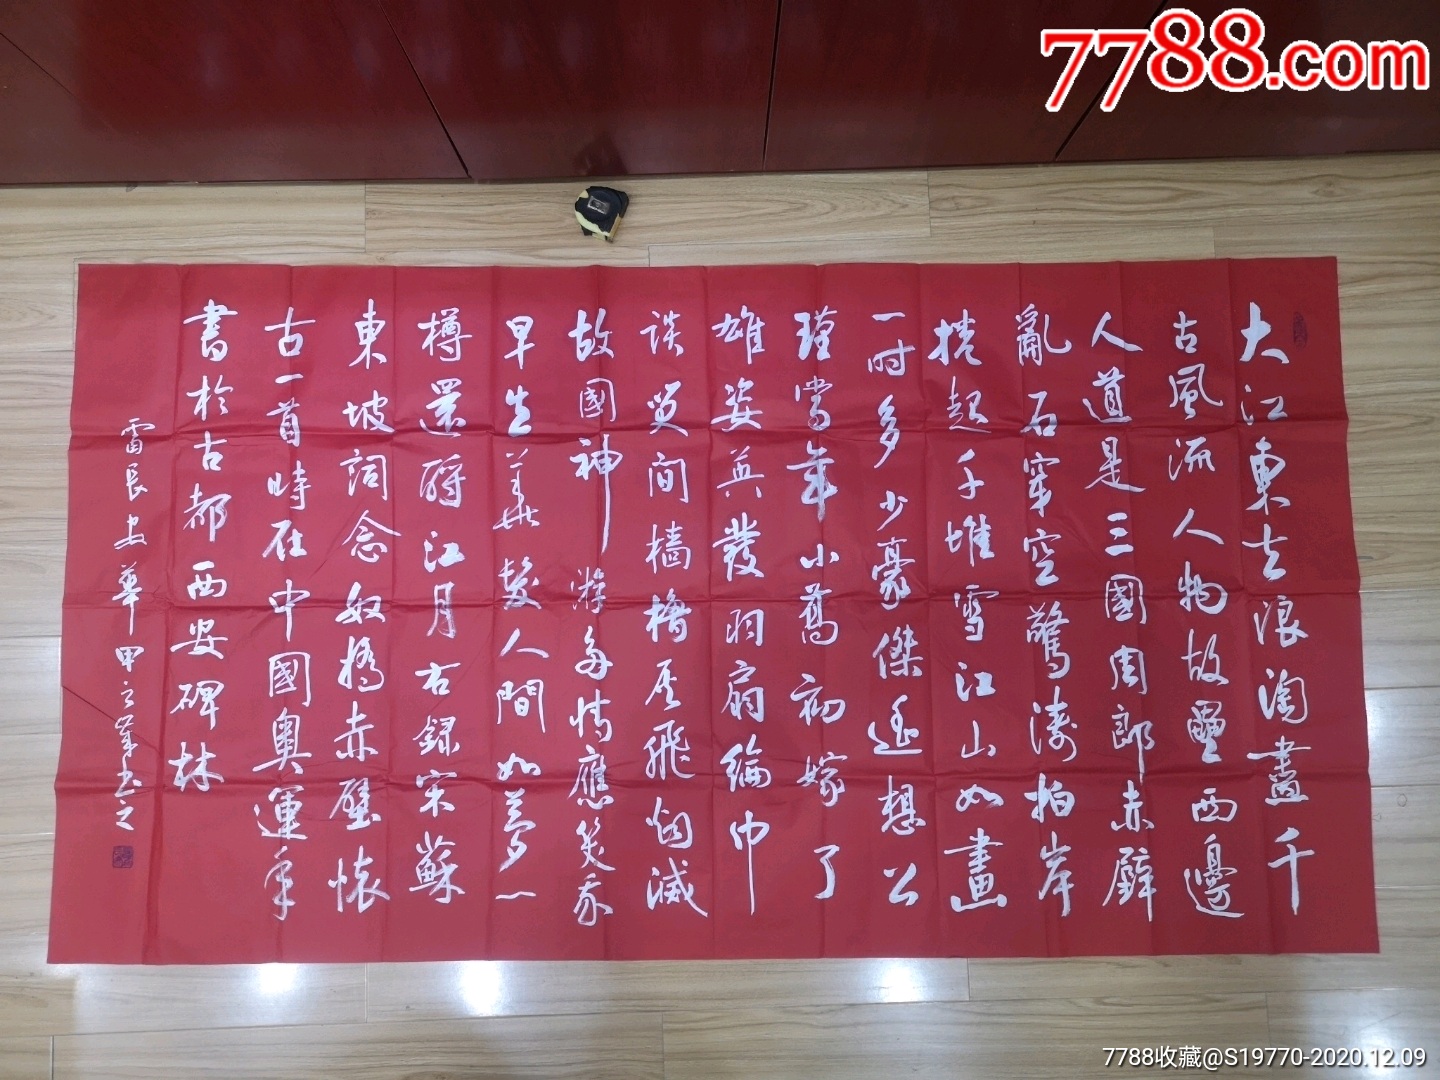 7788.com
大江東去浪淘盡千
古風流人物故壘西邊
人道是三國周郎赤壁
亂石穿空驚濤拍岸
捲起千堆雪江山如畫
一时多少豪傑遥想公
瑾當年小喬初嫁了
雄姿英發羽扇綸巾
談笑间檣櫓灰飛烟滅
故國神游多情應笑我
早生華髮人間如夢一
樽還酹江月右錄宋蘇
東坡詞念奴橋赤壁懷
古一首時在中國奧運年
書於古都西安碑林
雷長安華甲之筆书之
7788收藏@S19770-2020.12.09